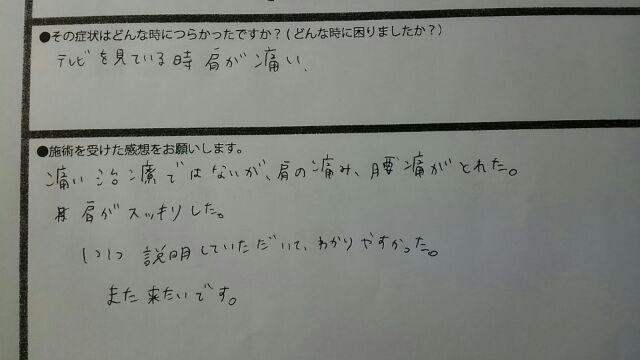 ●その症状はどんな時につらかったですか?(どんな時に困りましたか?)
テレビを見ている時肩が痛い、
●施術を受けた感想をお願いします。
痛い治療ではないが、肩の痛み、腰痛がとれた。
肩がスッキリした。
説明していただいて、わかりやすかった。
また来たいです。